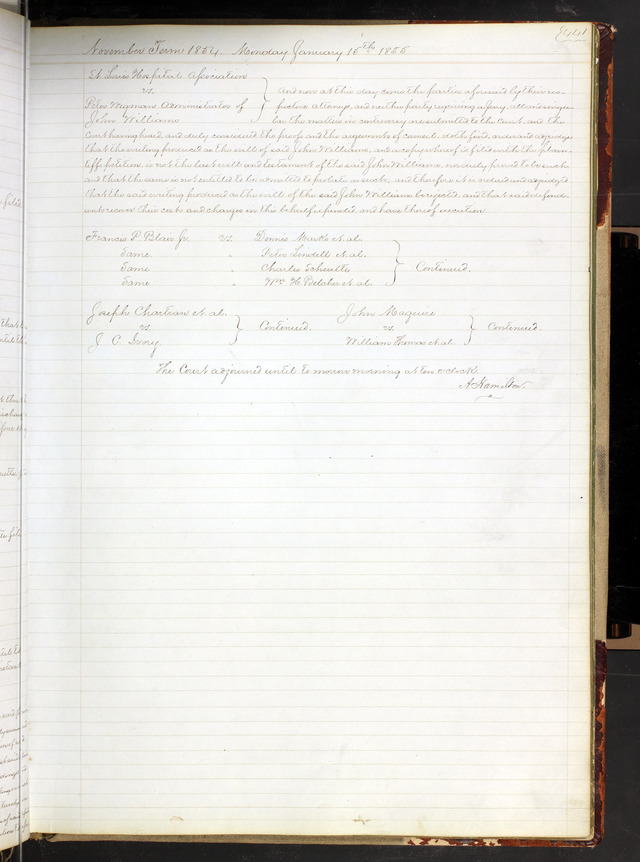 441
November Term 1854. Monday January 15th 1855
St. Louis Hospital Association
vs.
Peter Wigman Administrator of
John Williams
And now at this day come the parties aforesaid by their res-
pective attorneys, and neither party requiring a Jury, all and singu-
lar the matters in controversy are submitted to the Court, and the
Court having heard, and duly considered the proofs and the arguments of counsel, doth find, order and adjudge
that the writing produced as the will of said John Williams, and a copy whereof is filed with the plain-
tiff's petition, is not the last will and testament of the said John Williams, nor duly proved to be such
and that the same is not entitled to be admitted to probate as such, and therefore it is ordered and adjudged
that the said writing produced as the will of the said John Williams be rejected, and that said defend-
ants recover their costs and charges in this behalf expended, and have thereof execution.
Francis P. Blair Jr. vs. Dennis Marks et al.
Same. " Peter Lindell et al.
Same " Charles Schuetts
Same. " Wm. H. Belcher et al.
Continued.
Joseph Chartran et al.
vs.
J. C. Ivory.
Continued.
John Maguire
vs.
William Thomas et al.
Continued.
The Court adjourned until to morrow morning at ten o'clock.
A Hamilton